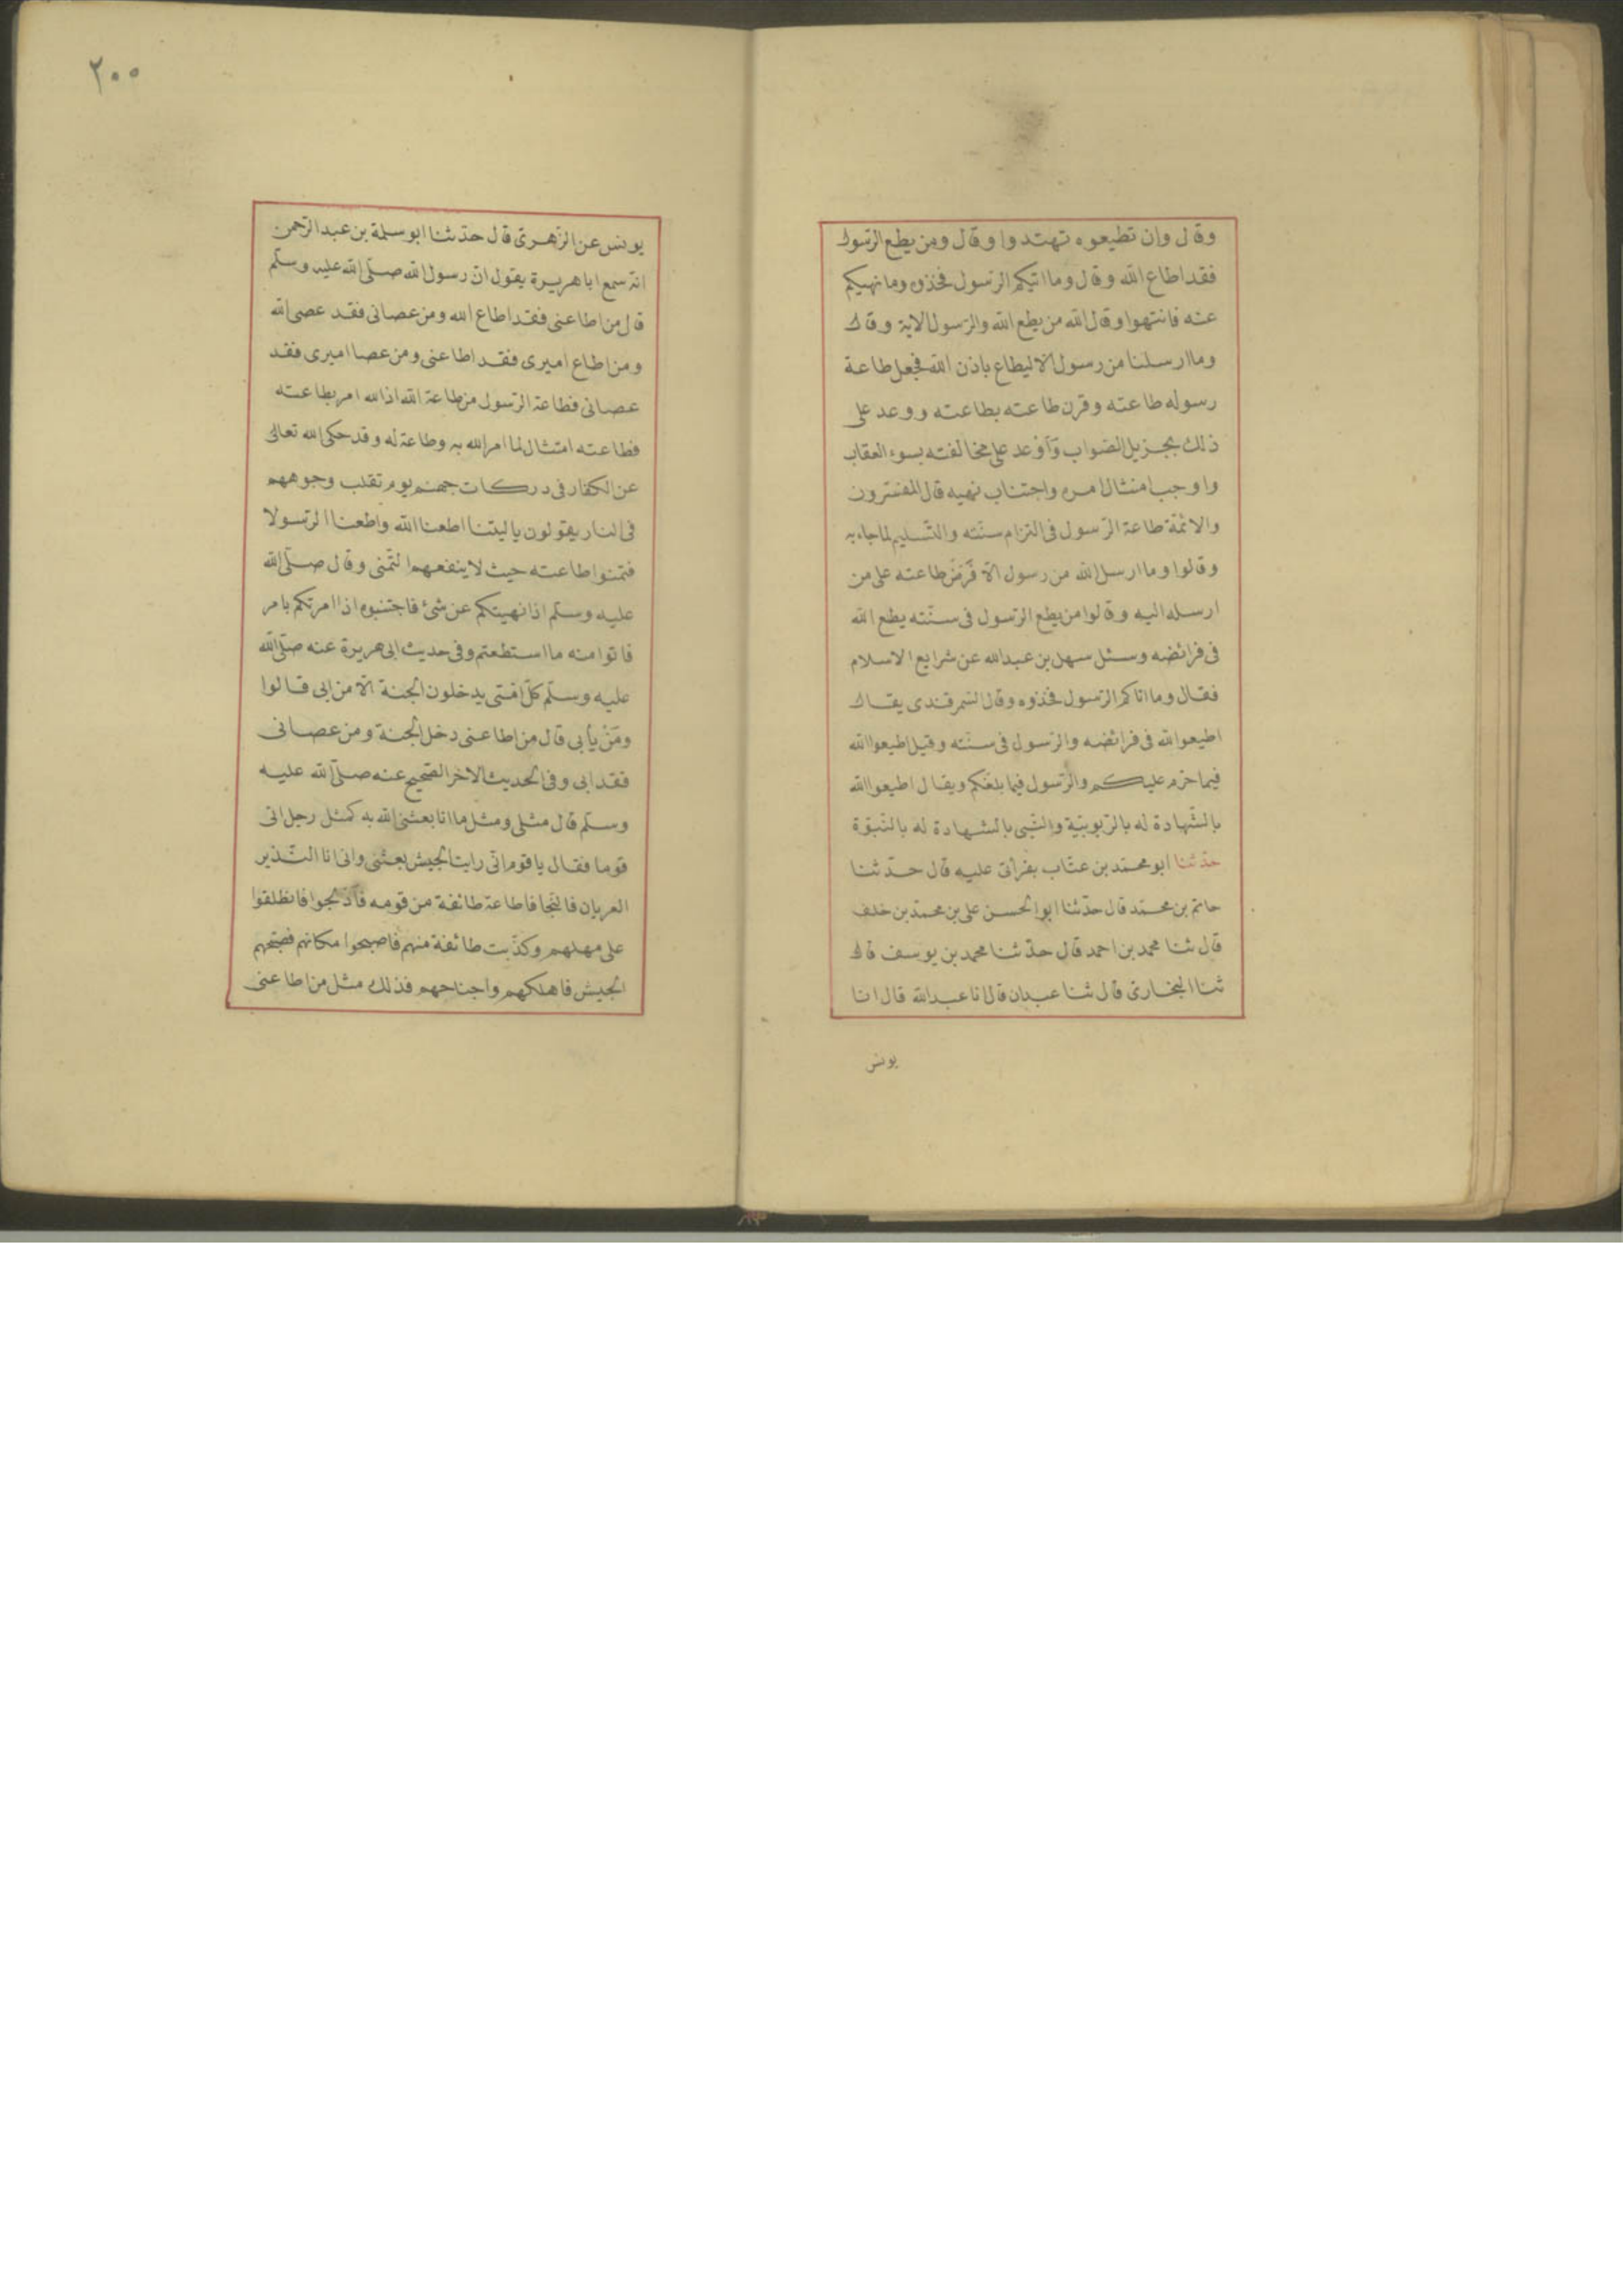 وقال وان تطيعوه تهتدوا وقال ومن يطع الرّسول
فقد اطاع الله وقال وما اتيكم الرّسول فخذوه وما نهيكم
عنه فانتهوا وقال الله من يطع الله والرّسول الاية وقال
وما ارسلنا من رسول الّا ليطاع باذن الله فجعل طاعة
رسوله طاعته وقرن طاعته بطاعته ووعد على
ذلك بجزيل الثواب وَاَوْعد على مخالفته بسوء العقاب
واوجب امتثال امره واجتناب نهيه قال المفسّرون
والائمّة طاعة الرّسول فى التزام سنّته والتّسليم لما جاء به
وقالوا وما ارسل الله من رسول الّا فَرَضَ طاعته على من
ارسله اليه وقالوا من يطع الرّسول فى سنّته يطع الله
فى فرائضه وسئل سهل بن عبد الله عن شرايع الاسلام
فقال وما اتاكم الرّسول فخذوه وقال السّمرقندى يقال
اطيعوا الله فى فرائضه والرّسول فى سنّته وقيل اطيعوا الله
فيما حرّم عليكم والرّسول فيما بلّغكم ويقال اطيعوا الله
بالشّهادة له بالرّبوبيّة والنّبى بالشهادة له بالنّبوّة
حدّثنا ابو محمّد بن عتّاب بقرأتى عليه قال حدّثنا
حاتم بن محمّد قال حدّثنا ابو الحسن على بن محمّد بن خلف
قال ثنا محمد بن احمد قال حدّثنا محمد بن يوسف قال
ثنا البخارىّ قال ثنا عبدان قال انا عبد الله قال انا
يونس
٢٠٠
يونس عن الزّهرىّ قال حدّثنا ابو سلمة بن عبد الرّحمن
انّه سمع ابا هريرة يقول انّ رسول الله صلّى الله عليه وسلّم
قال من اطاعنى فقد اطاع الله ومن عصانى فقد عصى الله
ومن اطاع اميرى فقد اطاعنى ومن عصا اميرى فقد
عصانى فطاعة الرّسول من طاعة الله اذ الله امر بطاعته
فطاعته امتثال لما امر الله به وطاعة له وقد حكى الله تعالى
عن الكفار فى دركات جهنم يوم تقلب وجوههم
فى النار يقولون يا ليتنا اطعنا الله واطعنا الرّسولا
فتمنوا طاعته حيث لا ينفعهم التّمنى وقال صلّى الله
عليه وسلّم اذا نهيتكم عن شئ فاجتنبوه اذا امرتكم بامر
فاتوا منه ما استطعتم وفى حديث ابى هريرة عنه صلّى الله
عليه وسلّم كلّ امّتى يدخلون الجنة الّا من ابى قالوا
وَمَنْ يأبى قال من اطاعنى دخل الجنة ومن عصانى
فقد ابى وفى الحديث الاخر الصّحيح عنه صلّى الله عليه
وسلّم قال مثلى ومثل ما انا بعثنى الله به كمثل رجل اتى
قوما فقال يا قوم انّى رايت الجيش بعثنى وانى انا النّذير
العريان فالنّجا فاطاعة طائفة من قومه فَاَدْلجوا فانطلقوا
على مهلهم وكذّبت طائفة منهم فاصبحوا مكانهم فصبّحهم
الجيش فاهلكهم واجتاحهم فذلك مثل من اطاعنى